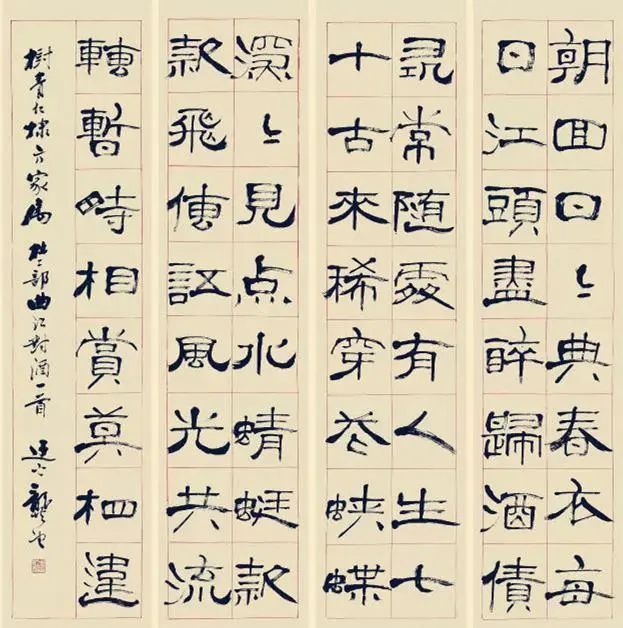 朝回日〻典春衣每
日江頭盡醉歸酒債
尋常随處有人生七
十古來稀穿花蛺蝶
深〻見点水蜻蜓款
款飛傳語風光共流
轉暫時相賞莫相違
樹青仁棣方家屬 杜工部曲江對酒一首 龔望